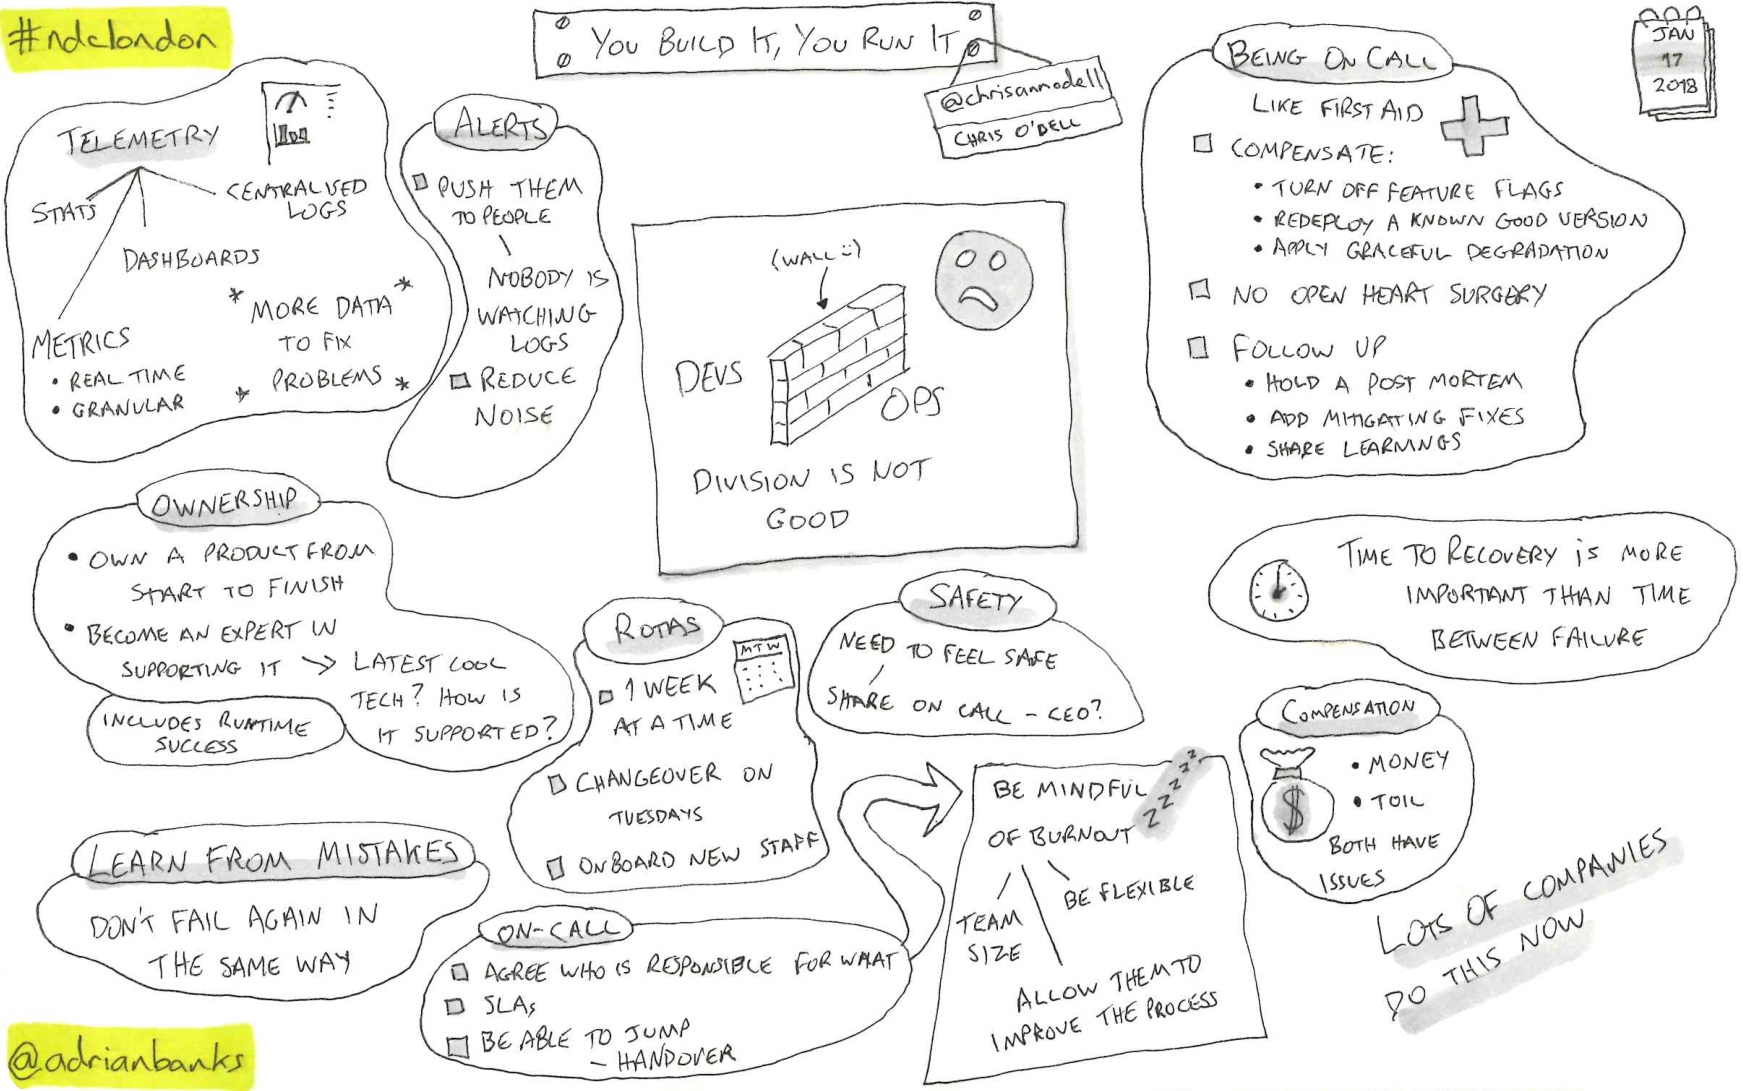 #ndclondon
YOU BUILD IT, YOU RUN IT
@chrisannodell
CHRIS O'DELL
JAN
17
2018
TELEMETRY
STATS
CENTRALISED
LOGS
DASHBOARDS
METRICS
• REAL TIME
• GRANULAR
* MORE DATA *
TO FIX
* PROBLEMS *
ALERTS
PUSH THEM
TO PEOPLE
NOBODY IS
WATCHING
LOGS
REDUCE
NOISE
(WALL :))
DEVS
OPS
DIVISION IS NOT
GOOD
BEING ON CALL
LIKE FIRST AID
COMPENSATE:
• TURN OFF FEATURE FLAGS
• REDEPLOY A KNOWN GOOD VERSION
• APPLY GRACEFUL DEGRADATION
NO OPEN HEART SURGERY
FOLLOW UP
• HOLD A POST MORTEM
• ADD MITIGATING FIXES
• SHARE LEARNINGS
OWNERSHIP
• OWN A PRODUCT FROM
START TO FINISH
• BECOME AN EXPERT IN
SUPPORTING IT
LATEST COOL
TECH? HOW IS
IT SUPPORTED?
INCLUDES RUNTIME
SUCCESS
ROTAS
MTW
1 WEEK
AT A TIME
CHANGEOVER ON
TUESDAYS
ONBOARD NEW STAFF
SAFETY
NEED TO FEEL SAFE
SHARE ON CALL - CEO?
TIME TO RECOVERY IS MORE
IMPORTANT THAN TIME
BETWEEN FAILURE
COMPENSATION
$
• MONEY
• TOIL
BOTH HAVE
ISSUES
LEARN FROM MISTAKES
DON'T FAIL AGAIN IN
THE SAME WAY
ON-CALL
AGREE WHO IS RESPONSIBLE FOR WHAT
SLAs
BE ABLE TO JUMP
- HANDOVER
BE MINDFUL
OF BURNOUT
ZZZZZZZ
TEAM
SIZE
BE FLEXIBLE
ALLOW THEM TO
IMPROVE THE PROCESS
LOTS OF COMPANIES
DO THIS NOW
@adrianbanks